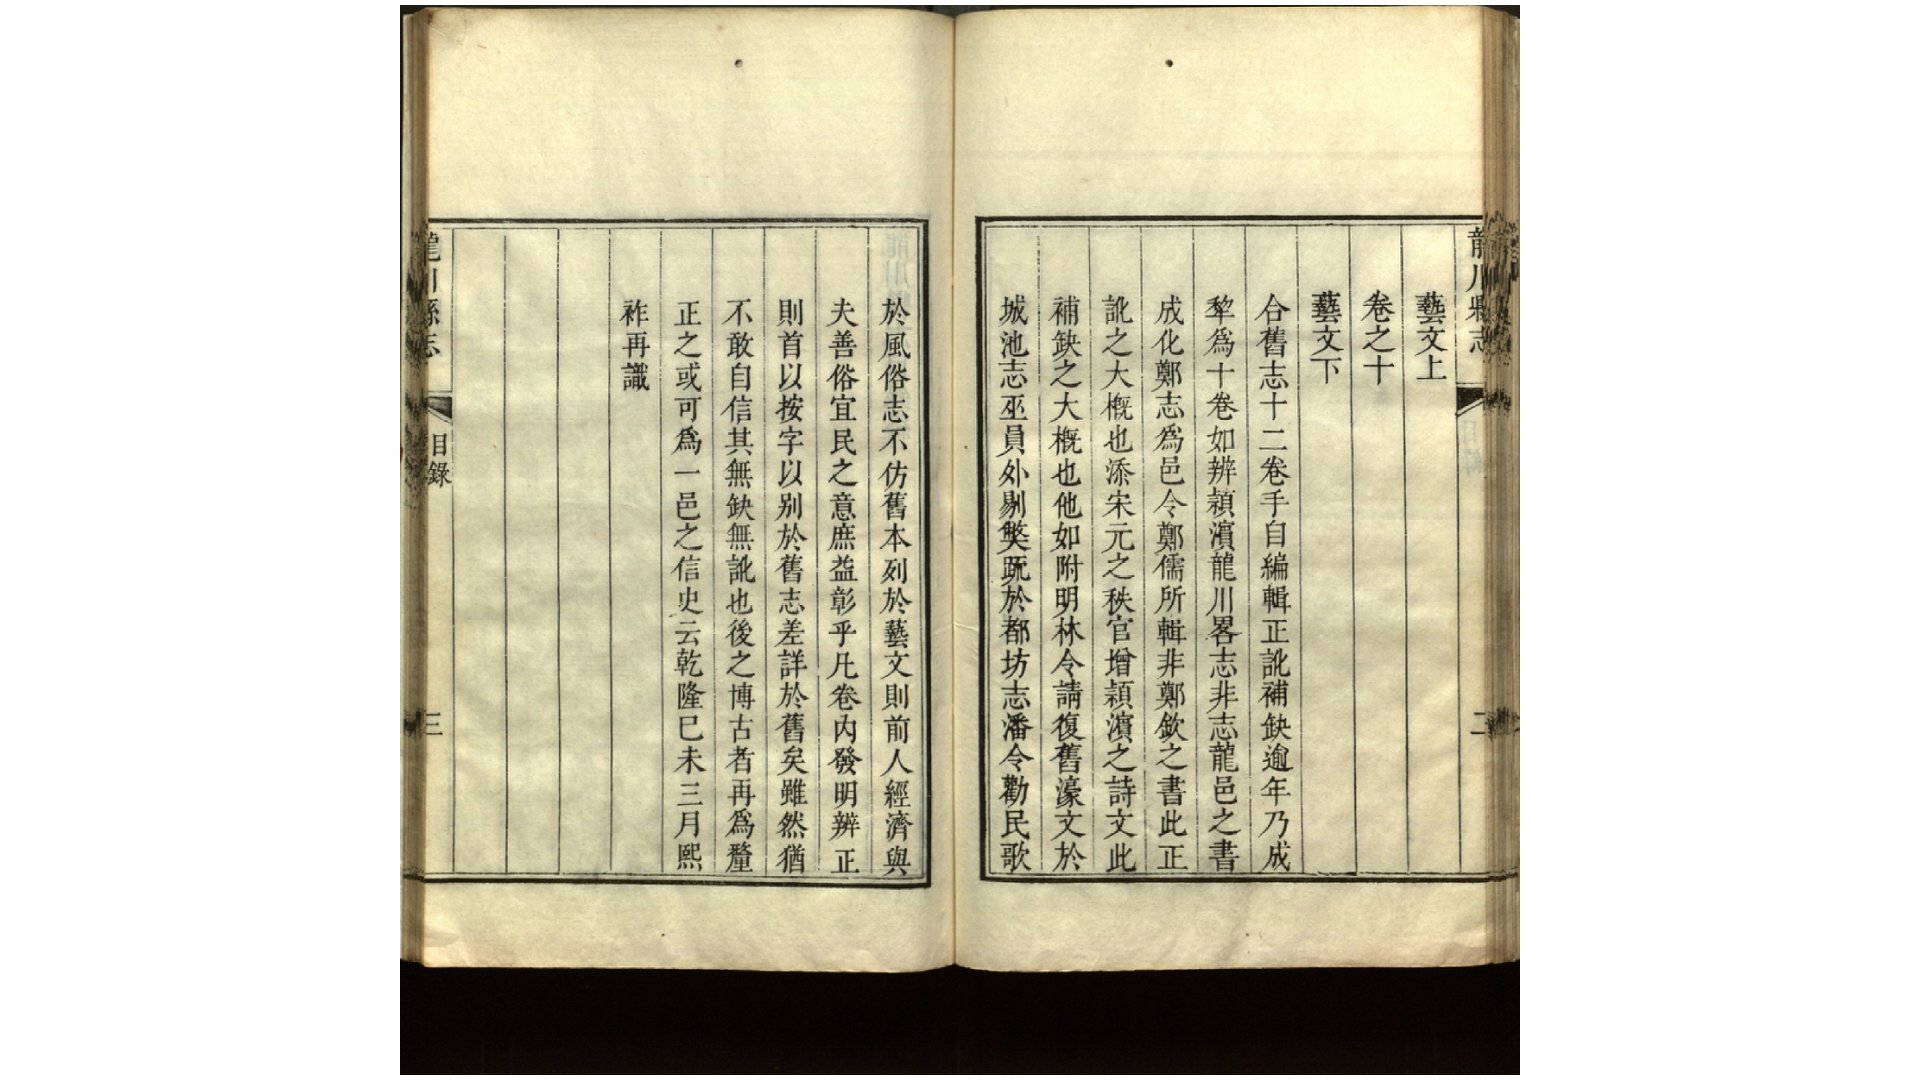 龍川縣志
二
藝文上
卷之十
藝文下
合舊志十二卷手自編輯正訛補缺逾年乃成
犂為十卷如辨穎濱龍川畧志非志龍邑之書
成化鄭志為邑令鄭儒所輯非鄭欽之書此正
訛之大槪也添宋元之秩官增穎濱之詩文此
補缺之大概也他如附明林令請復舊濠文於
城池志巫員外剔獘疏於都坊志潘令勸民歌
於風俗志不仿舊本列於藝文則前人經濟與
夫善俗宜民之意庶益彰乎凡卷內發明辨正
則首以按字以別於舊志差詳於舊矣雖然猶
不敢自信其無缺無訛也後之博古者再為釐
正之或可為一邑之信史云乾隆巳未三月熙
祚再識
龍川縣志
目錄
三